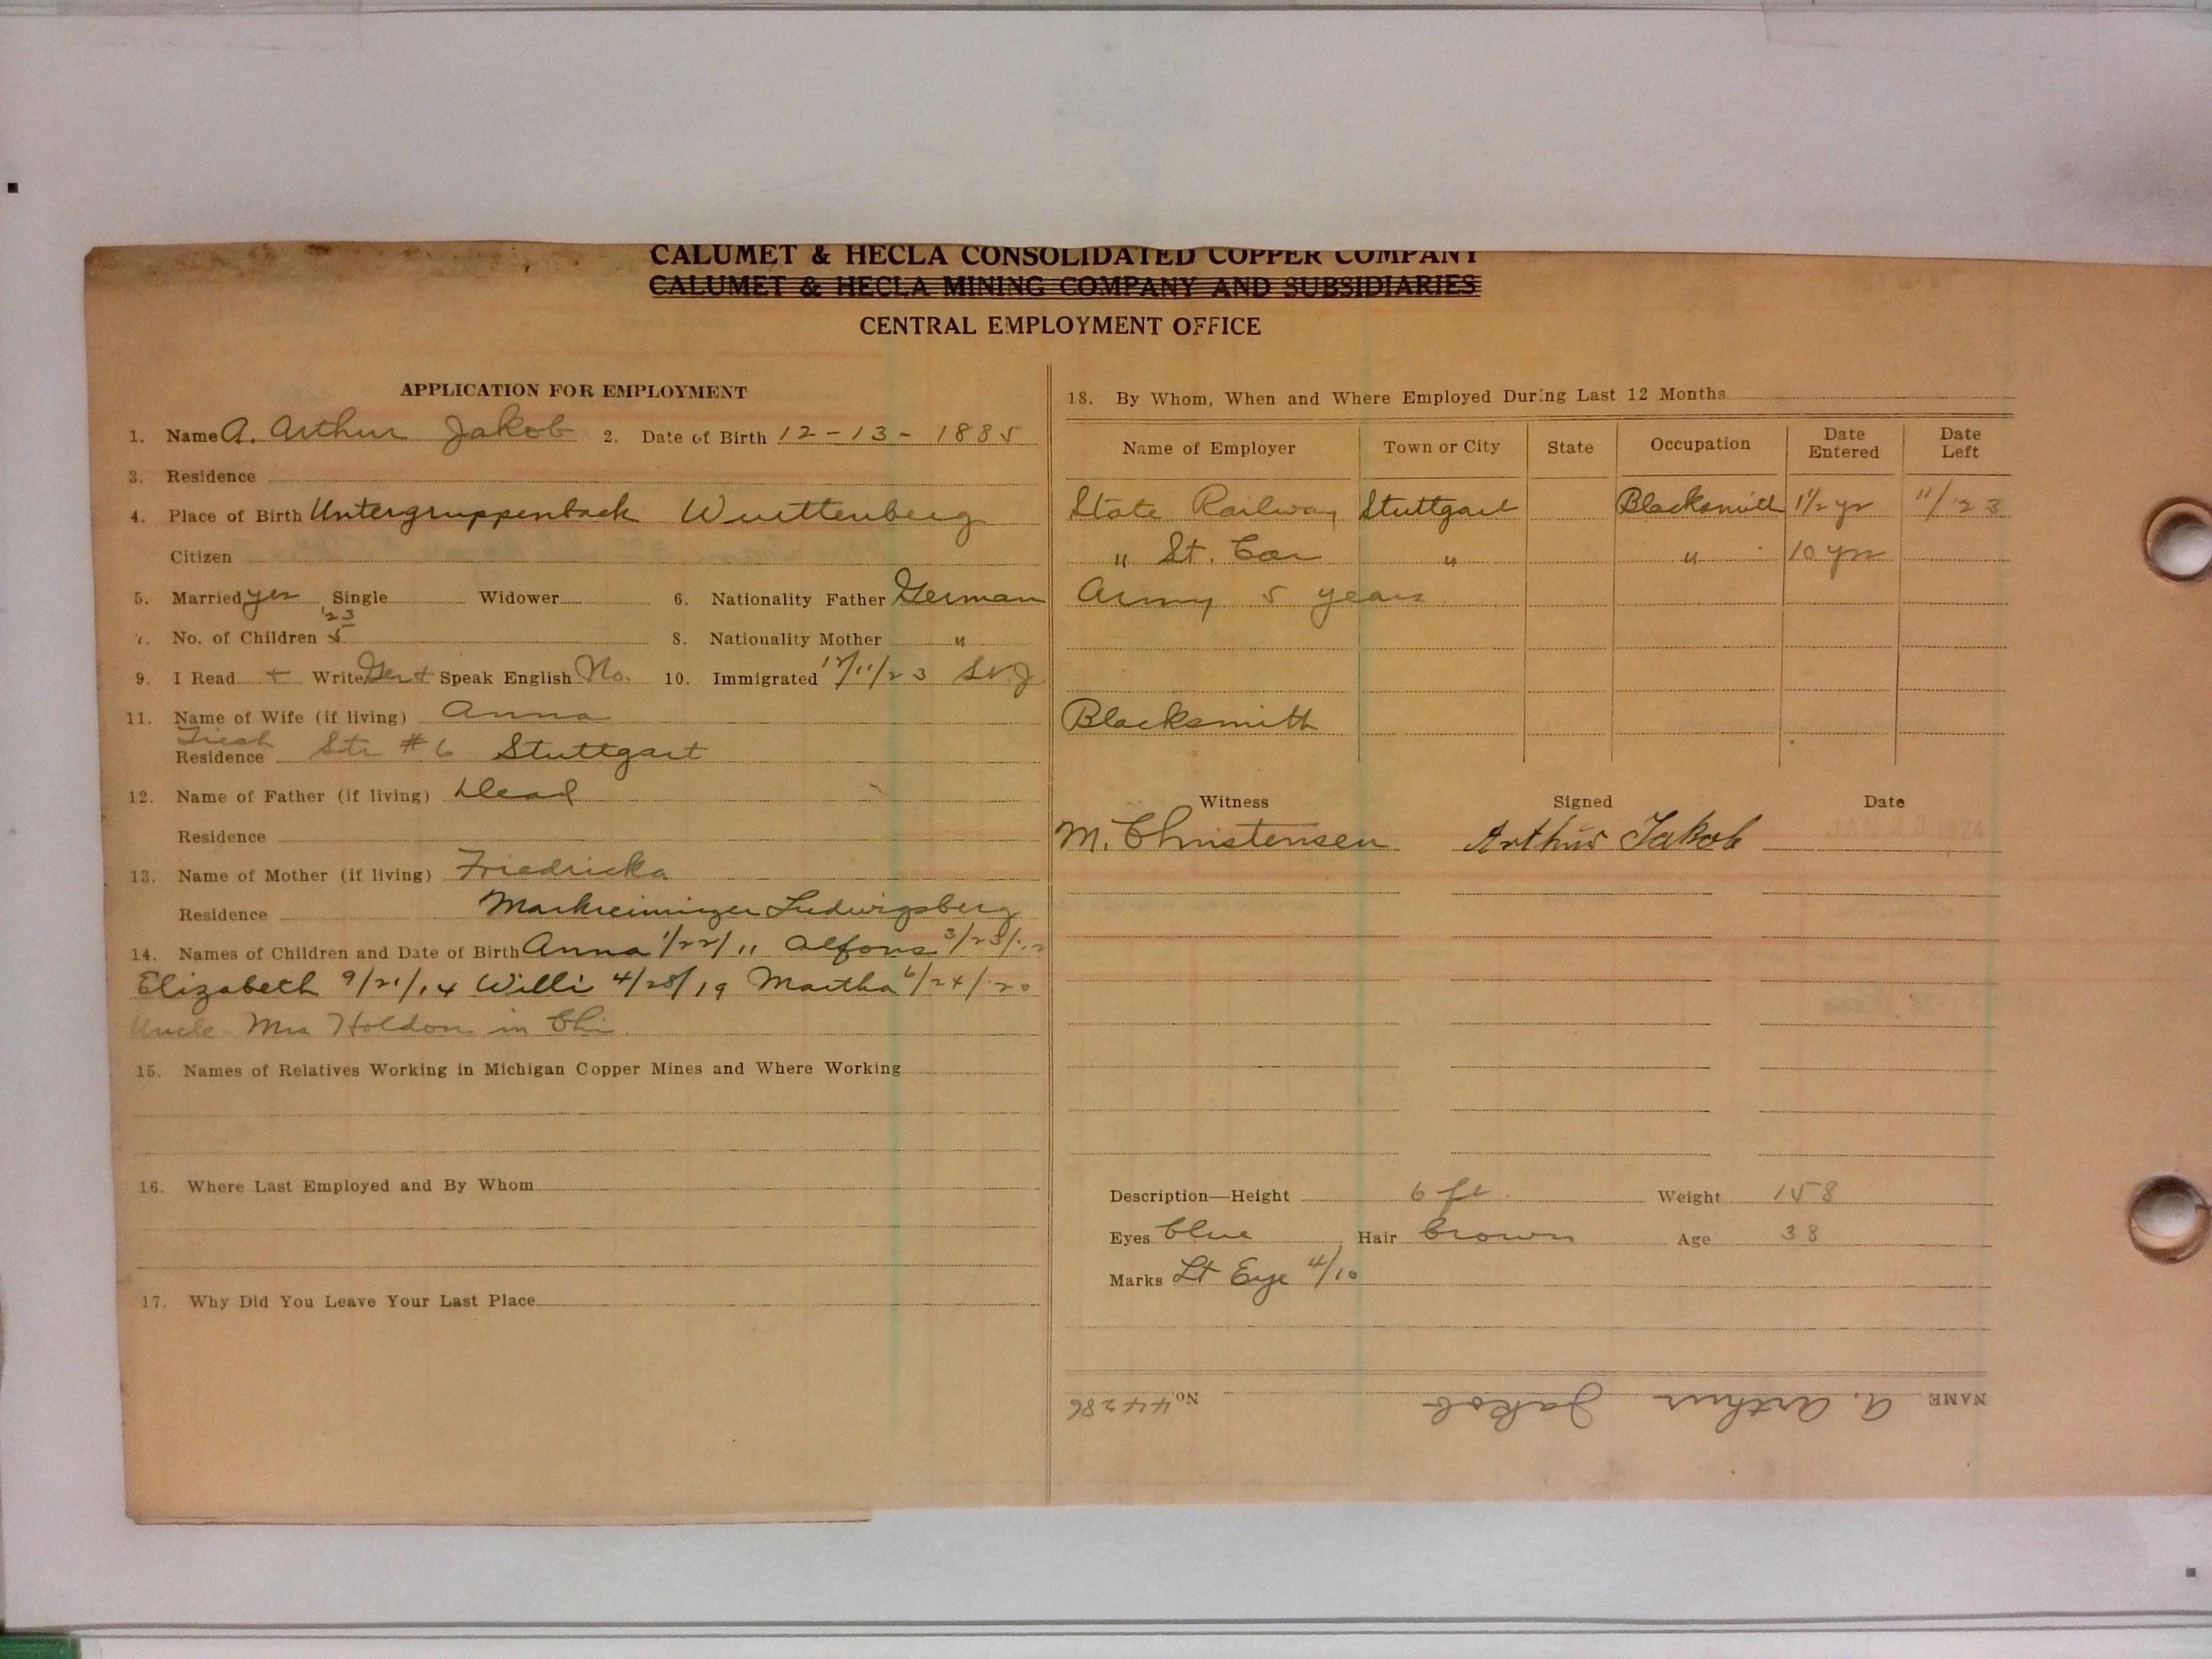 CALUMET & HECLA CONSOLIDATED COPPER COMPANY
CALUMET & HECLA MINING COMPANY AND SUBSIDIARIES
CENTRAL EMPLOYMENT OFFICE
APPLICATION FOR EMPLOYMENT
1. Name A. Arthur Jakob 2. Date of Birth 12-13-1885
3. Residence
4. Place of Birth Untergruppenback Wurttenberg
Citizen
5. Married yes Single Widower 6. Nationality Father German
'23
7. No. of Children 5 8. Nationality Mother "
9. I Read + Write Ger + Speak English No. 10. Immigrated 12/11/23
11. Name of Wife (if living) Anna
Residence Str #6 Stuttgart
12. Name of Father (if living) Dead
Residence
13. Name of Mother (if living) Friedricka
Residence Ludwigsberg
14. Names of Children and Date of Birth Anna 1/22/11 Alfons 3/23/12
Elizabeth 9/21/14 Willi 4/28/19 Martha 6/24/20
Uncle Mrs Holdon in Chi
15. Names of Relatives Working in Michigan Copper Mines and Where Working
16. Where Last Employed and By Whom
17. Why Did You Leave Your Last Place
18. By Whom, When and Where Employed During Last 12 Months
Name of Employer Town or City State Occupation Date Entered Date Left
State Railway Stuttgart Blacksmith 1 1/2 yr 11/23
" St. Car " " 10 yrs
Army 5 years
Blacksmith
Witness Signed Date
M. Christensen Arthur Jakob
Description—Height 6 ft Weight 158
Eyes blue Hair brown Age 38
Marks Lt Eye 4/10
NAME A. Arthur Jakob No. 44286